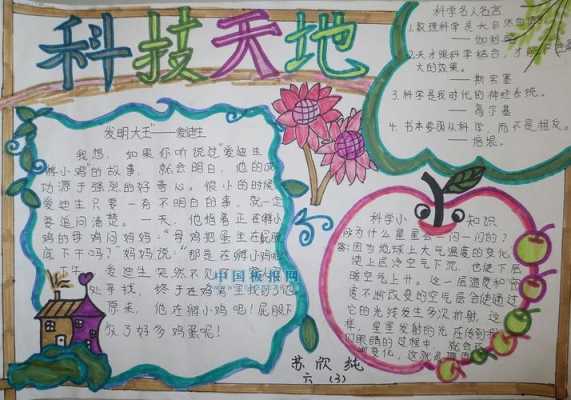 科技天地
科学名人名言
1.数理科学是大自然的语言。
——伽利略
2.天才跟科学结合，才能
大的效果。
——斯宾塞
3.科学是我时代的神经系统。
——高尔基
4.书本要跟从科学，而不是相反。
——培根。
发明大王”——爱迪生
我想，如果你听说过“爱迪生
孵小鸡”的故事，就会明白，他的成
功源于强烈的好奇心。很小的时候
爱迪生只要一有不明白的事，就一定
要追问清楚。一天，他指着正在孵小
鸡的母鸡问妈妈：“母鸡把蛋坐在屁股
底下干吗？”妈妈说：“那是在孵小鸡呢
下午，爱迪生突然不见了
处寻找，终于在鸡窝里找到了他
原来，他在孵小鸡呢！屁股下
放了好多鸡蛋呢！
中国板报网
科学小知识
问为什么星星会一闪一闪的？
答：因为地球上大气温度的变化，
使上层冷空气下沉，也使下层
暖空气上升。这一层温度和密
度不断改变的空气层会使通过
它的光线发生多次折射，这
样，星星发射的光在传到我
们眼睛的过程中，就会
变化，这就
苏欣纯
六（3）